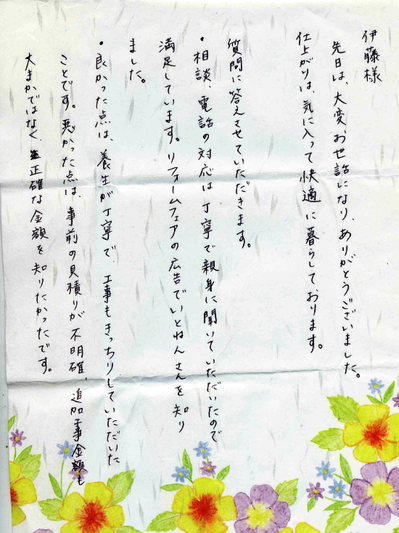 伊藤様
先日は、大変お世話になり、ありがとうございました。
仕上がりは気に入って快適に暮らしております。
質問に答えさせていただきます。
・相談、電話の対応は丁寧で親身に聞いていただいたので
満足しています。リフォームフェアの広告でいとねんさんを知り
ました。
・良かった点は、養生が丁寧で、工事もきっちりしていただいた
ことです。悪かった点は、事前の見積りが不明確、追加工事金額も
大まかではなく正確な金額を知りたかったです。